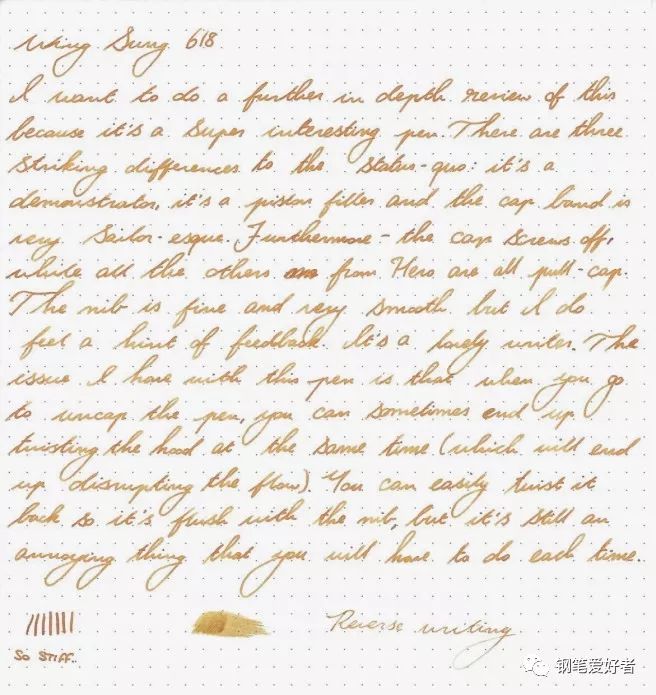 Wing Sung 618
I want to do a further in depth review of this
because it's a super interesting pen. There are three
striking differences to the status-quo: it's a
demonstrator, it's a piston filler and the cap band is
very Sailor-esque. Furthermore - the cap screws off,
while all the others from Hero are all pull-cap.
The nib is fine and very smooth but I do
feel a hint of feedback. It's a lovely writer. The
issue I have with this pen is that when you go
to uncap the pen, you can sometimes end up
twisting the hood at the same time (which will end
up disrupting the flow). You can easily twist it
back so it's flush with the nib, but it's still an
annoying thing that you will have to do each time.
Reverse writing
SO STIFF.
钢笔爱好者